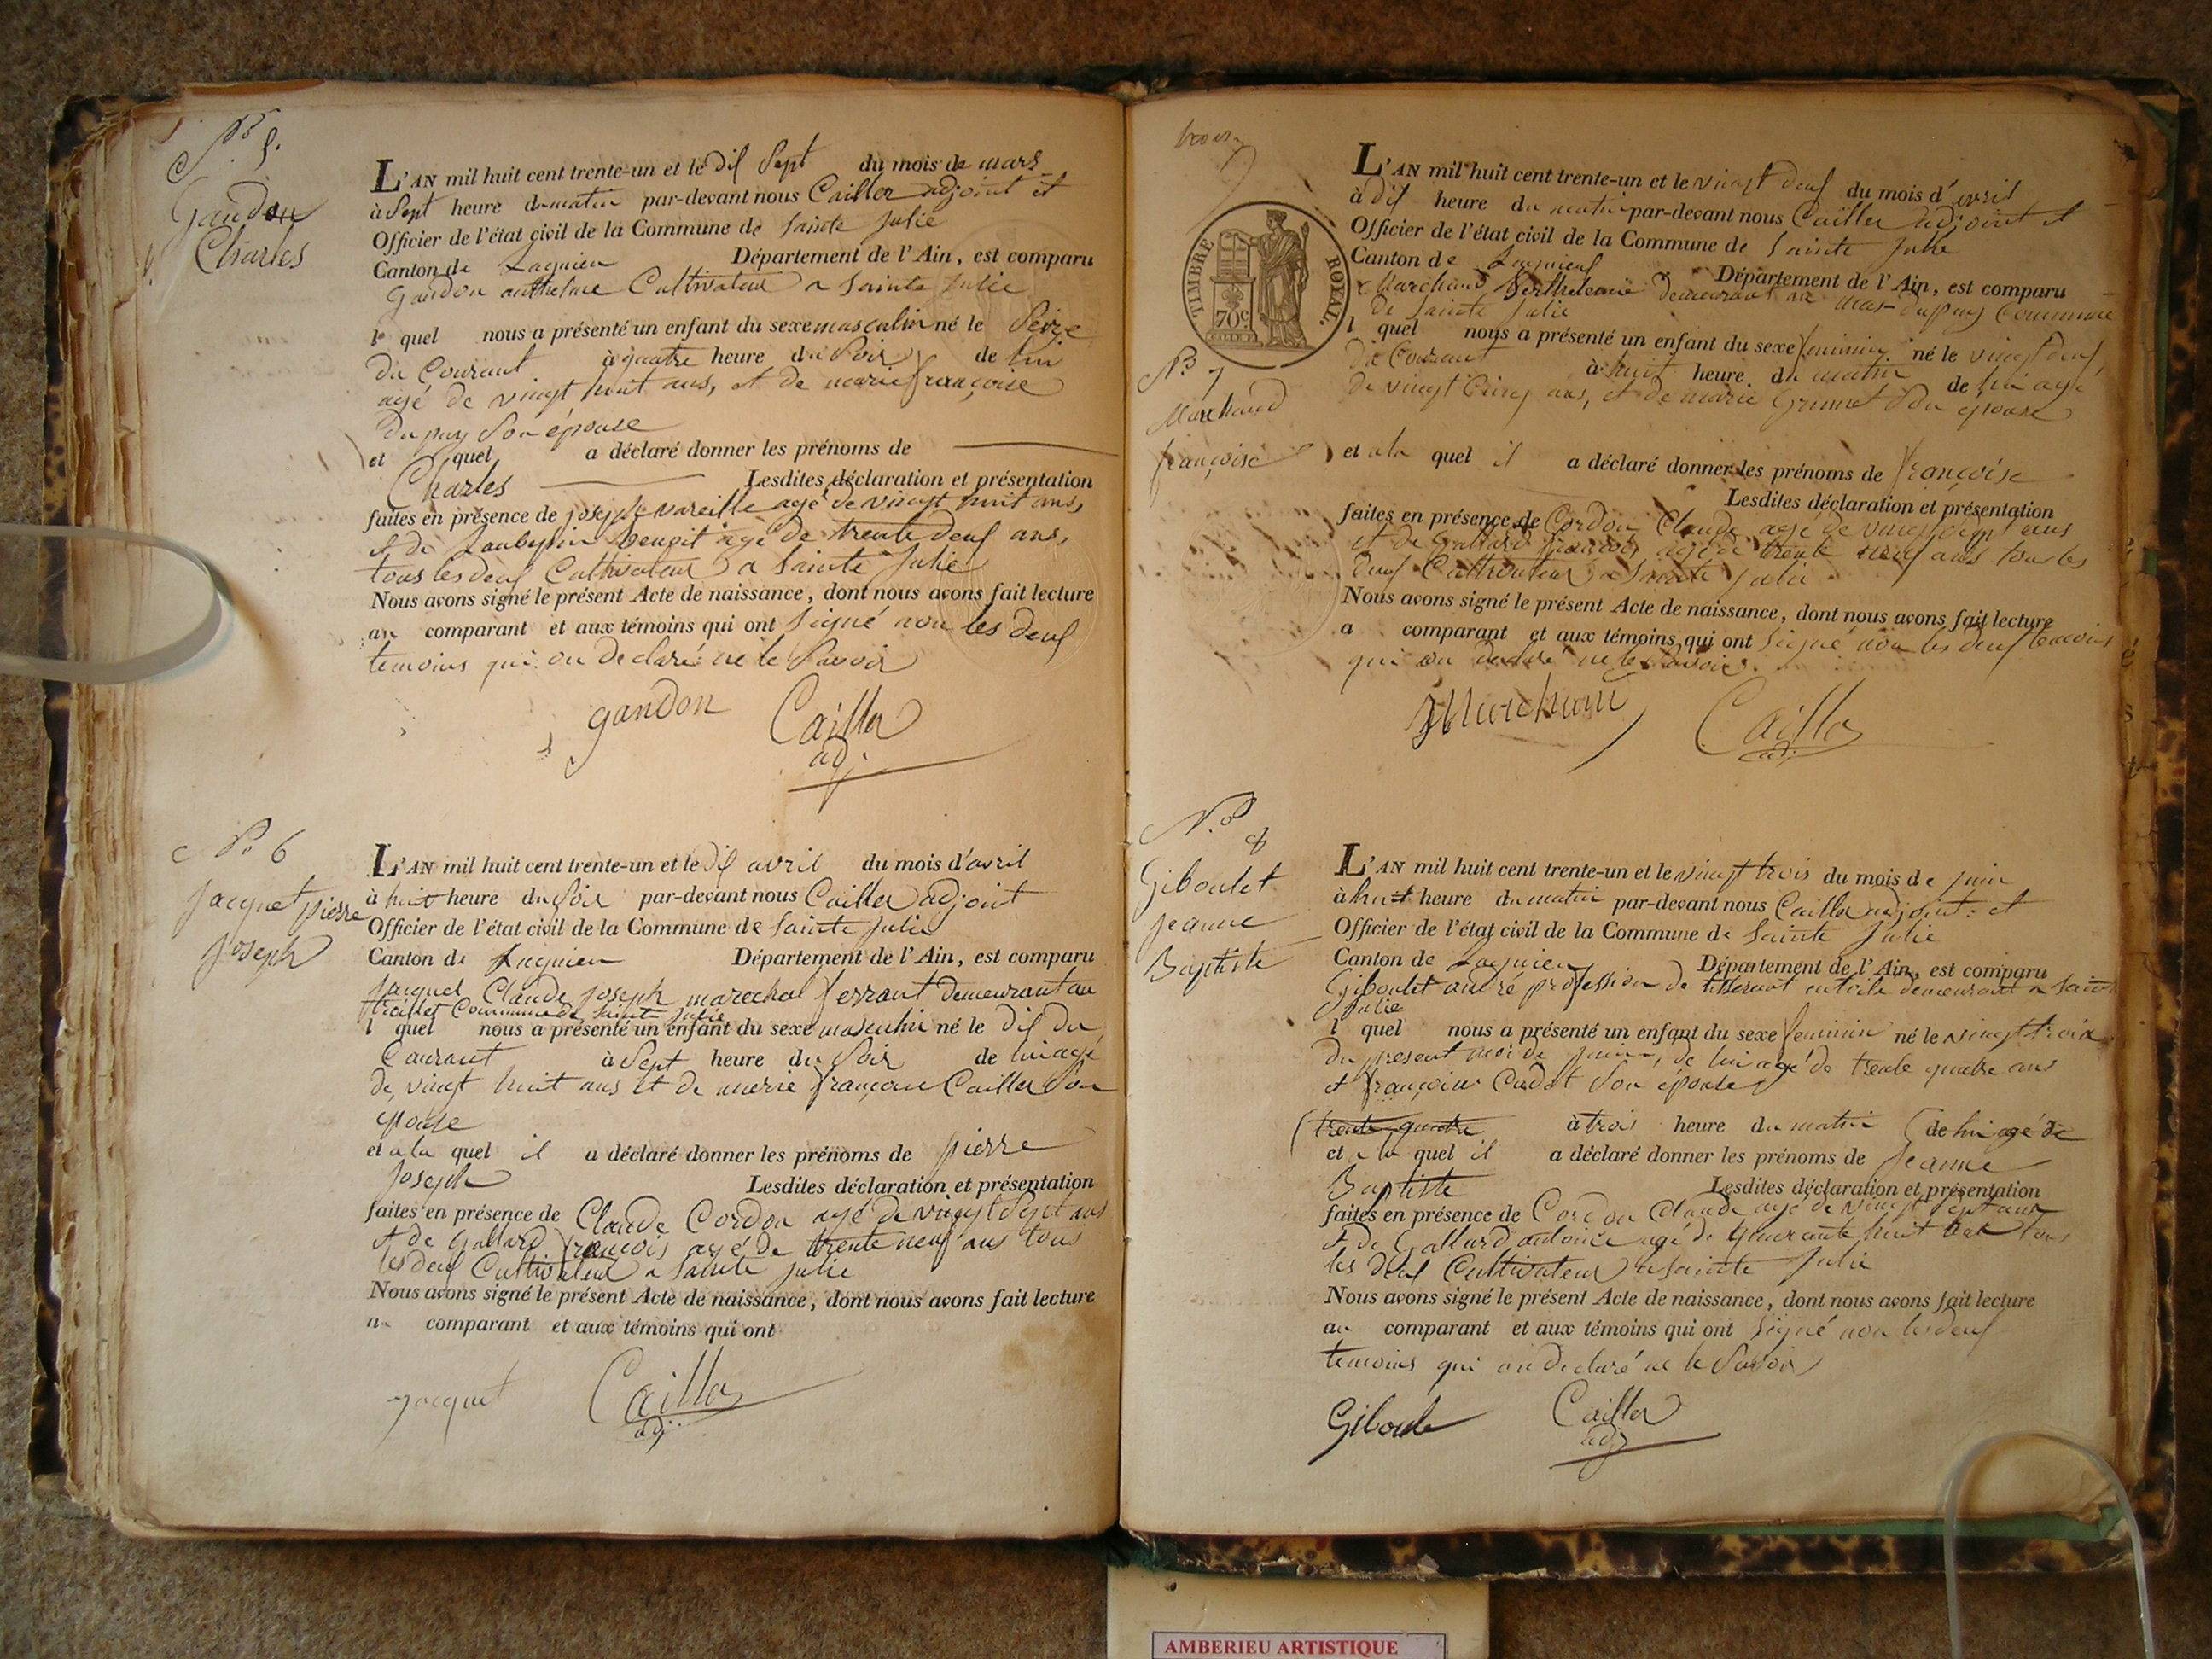 N° 5.
Gandon
Charles
L'AN mil huit cent trente-un et le dix Sept du mois de mars
à Sept heure du matin par-devant nous Cailler adjoint et
Officier de l'état civil de la Commune de Sainte Julie
Canton de Lagnieu Département de l'Ain, est comparu
Gandon anthelme Cultivateur a Sainte Julie
le quel nous a présenté un enfant du sexe masculin né le Seize
du Courant à quatre heure du Soir de lui
agé de vingt huit ans, et de marie françoise
Dupuy Son épouse
et quel a déclaré donner les prénoms de
Charles Lesdites déclaration et présentation
faites en présence de joseph vareille agé de vingt huit ans,
et de Laubepin benoit agé de trente deux ans,
tous les deux Cultivateur a Sainte Julie
Nous avons signé le présent Acte de naissance, dont nous avons fait lecture
au comparant et aux témoins qui ont Signé non les deux
temoins qui on declaré ne le Savoir
gandon Cailler
adj.
N° 6
jacquet pierre
joseph
L'AN mil huit cent trente-un et le dix avril du mois d'avril
à huit heure du Soir par-devant nous Cailler adjoint
Officier de l'état civil de la Commune de Sainte Julie
Canton de Lagnieu Département de l'Ain, est comparu
jacquet Claude joseph marechal ferrant demeurant au
Commune de Sainte Julie
l quel nous a présenté un enfant du sexe masculin né le dix du
Courant à Sept heure du Soir de lui agé
de vingt huit ans et de marie françoise Cailler Son
epouse
et a la quel il a déclaré donner les prénoms de pierre
joseph Lesdites déclaration et présentation
faites en présence de Claude Cordon agé de vingt Sept ans
et de Gallard françois agé de trente neuf ans tous
les deux Cultivateur a Sainte julie
Nous avons signé le présent Acte de naissance, dont nous avons fait lecture
au comparant et aux témoins qui ont
jacquet Cailler
adj
TIMBRE ROYAL.
70c
N° 7
Marchand
françoise
L'AN mil huit cent trente-un et le vingt deux du mois d'avril
à dix heure du matin par-devant nous Cailler adjoint et
Officier de l'état civil de la Commune de Sainte Julie
Canton de Lagnieu Département de l'Ain, est comparu
Marchand Berthelemie demeurant au Mas-Dupuy Commune
de Sainte Julie
l quel nous a présenté un enfant du sexe feminin né le vingt deux
du Courant à huit heure du matin de lui agé
de vingt Cinq ans, et de marie Grumet Son épouse
et a la quel il a déclaré donner les prénoms de françoise
Lesdites déclaration et présentation
faites en présence de Cordon Claude agé de vingt Sept ans
et de Gallard françois agé de trente neuf ans tous les
deux Cultivateur a Sainte julie
Nous avons signé le présent Acte de naissance, dont nous avons fait lecture
a comparant et aux témoins qui ont Signé non les deux temoins
qui on declaré ne le Savoir.
Marchand Cailler
adj.
N° 8
Giboulet
jeanne
Baptiste
L'AN mil huit cent trente-un et le vingt trois du mois de juin
à huit heure du matin par-devant nous Cailler adjoint et
Officier de l'état civil de la Commune de Sainte Julie
Canton de Lagnieu Département de l'Ain, est comparu
Giboulet andré profession de tisserant en toile demeurant a Sainte
Julie
l quel nous a présenté un enfant du sexe feminin né le vingt trois
du present moi de juin, de lui agé de trente quatre ans
et françoise Cadot Son épouse
trente quatre à trois heure du matin de lui agé de
et a la quel il a déclaré donner les prénoms de jeanne
Baptiste Lesdites déclaration et présentation
faites en présence de Cordon Claude agé de vingt Sept ans
et de Gallard antoine agé de quarante huit ans tous
les deux Cultivateur a Sainte Julie
Nous avons signé le présent Acte de naissance, dont nous avons fait lecture
au comparant et aux témoins qui ont Signé non les deux
temoins qui on declaré ne le Savoir
Giboule Cailler
adj
AMBERIEU ARTISTIQUE